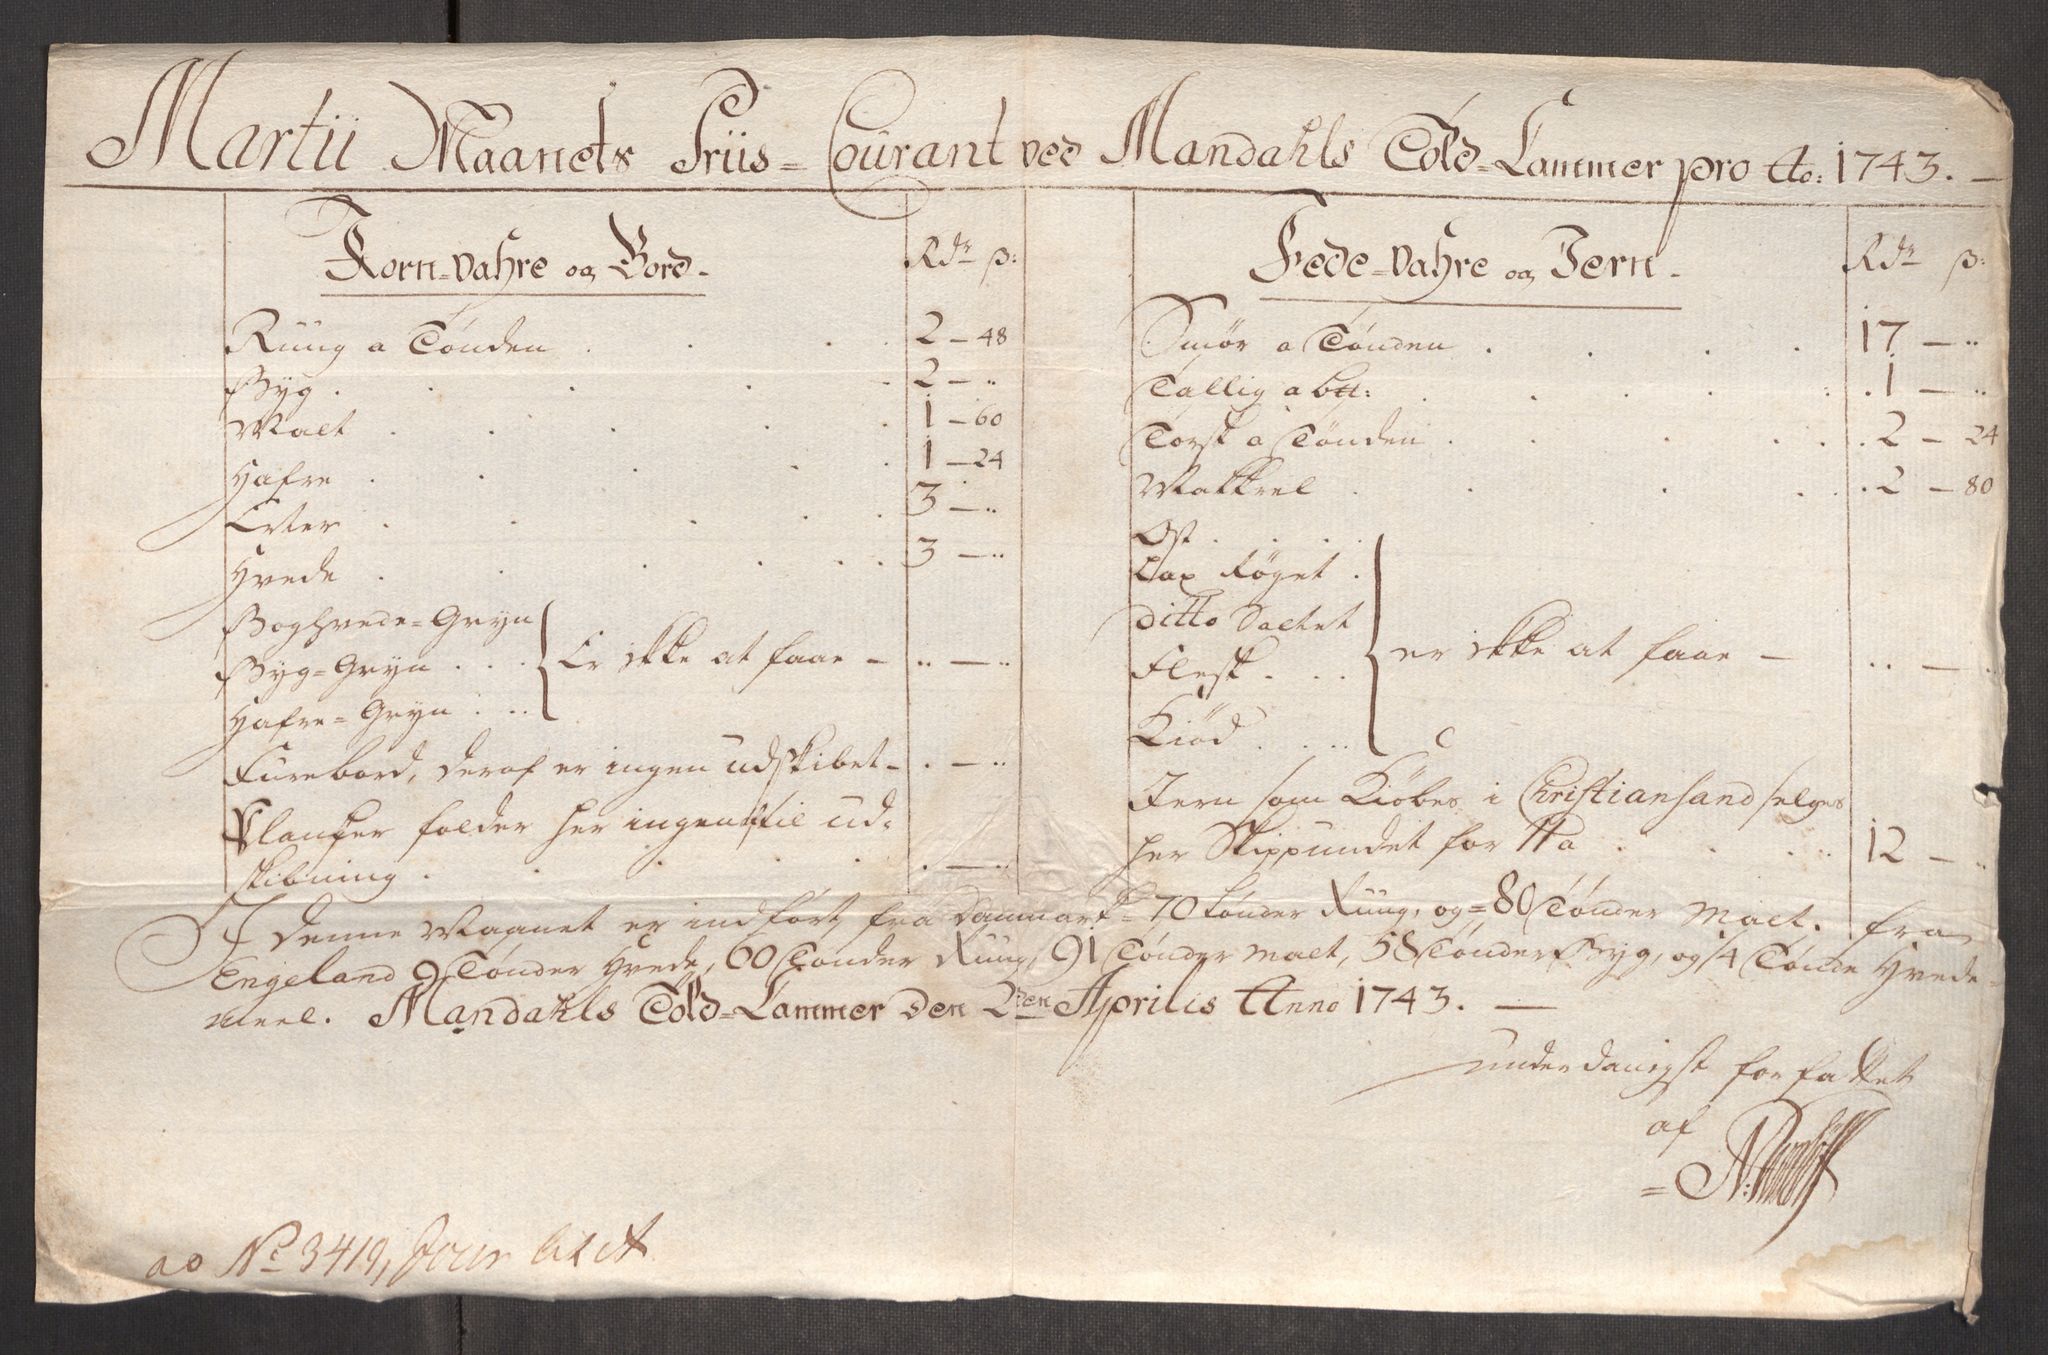 Martii Maanets Priis-Courant ved Mandahls Told-Cammer pro Ao: 1743. —
Korn-vahre og Bord.
Rdr ß:
Ruug a Tønden . . . 2 — 48
Byg . . . . . 2 — ..
Malt . . . . . 1 — 60
Hafre . . . . . 1 — 24
Erter . . . . . 3 — ..
Hvede . . . . . 3 — ..
Boghvede-Gryn
Byg-Gryn . . . Er ikke at faae — .. — ..
Hafre-Gryn . . .
Furebord, deraf er ingen udskibet — . — ..
Planker falder her ingen til ud-
skibning . . . . . . — ..
Fede-vahre og Jern.
Rdr ß:
Smør a Tønden . . . . 17 — ..
Tallig a btt: . . . . . 1 — ..
Torsk a Tønden . . . . . 2 — 24
Makkrel . . . . . 2 — 80
Ost . . . .
Lax Røget .
ditto Saltet
Flesk . . . er ikke at faae — .. — ..
Kiød . . .
Jern som Kiøbes i Christiansand selges
her Skippundet for a . . . . 12 — ..
I denne Maanet er indført, fra Danmark 70 tønder Ruug, og 80 Tønder Malt. fra
Engeland 9 Tønder Hvede, 60 Tønder Ruug, 91 Tønder Malt, 58 Tønder Byg, og 14 Tønde Hvede-
meel. Mandahls Told-Cammer den 2den Aprilis Anno 1743. —
underdanigst forfattet
af
ad No 3419, Jour lit A